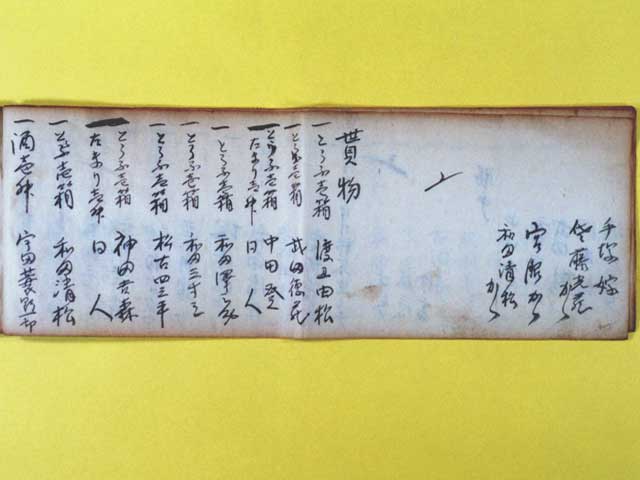 手塚嫁
佐藤から
宮原から
和田清松から
貰物
一とうふ壱箱 渡辺由松
一とうふ壱箱 武田徳
一とうふ壱箱 中田登
一たまり壱升 同人
一とうふ壱箱 和田
一とうふ壱箱 和田三千三
一とうふ壱箱 松古四三年
一とうふ壱箱 神田吉森
一たまり壱升 同人
一とうふ壱箱 和田清松
一酒壱升 宇田菱次郎